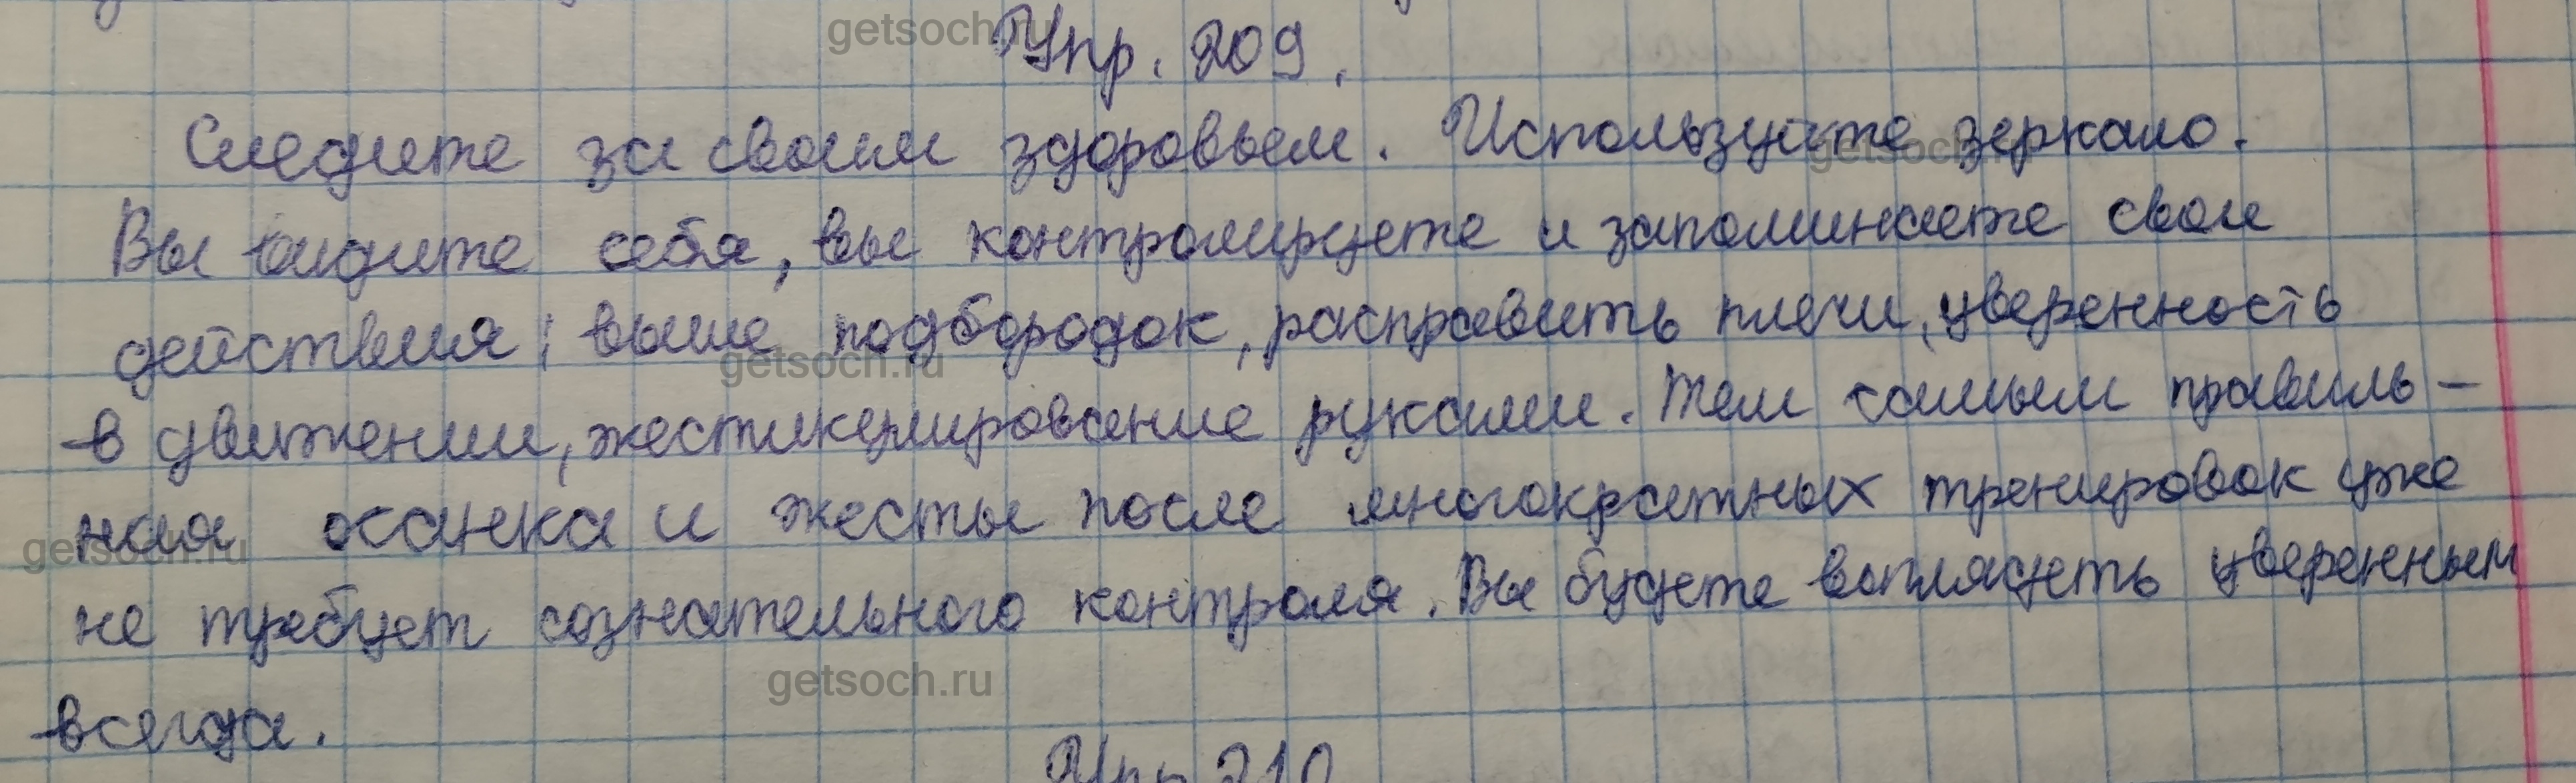 Упр. 209.
Следите за своим здоровьем. Используйте зеркало.
Вы видите себя, вы контролируете и запоминаете свои
действия: выше подбородок, расправить плечи, уверенность
в движении, жестикулирование руками. Тем самым правиль-
ная осанка и жесты после многократных тренировок уже
не требует сознательного контроля. Вы будете выглядеть уверенным
всегда.
Упр 210
getsoch.ru
getsoch.ru
getsoch.ru
getsoch.ru
getsoch.ru